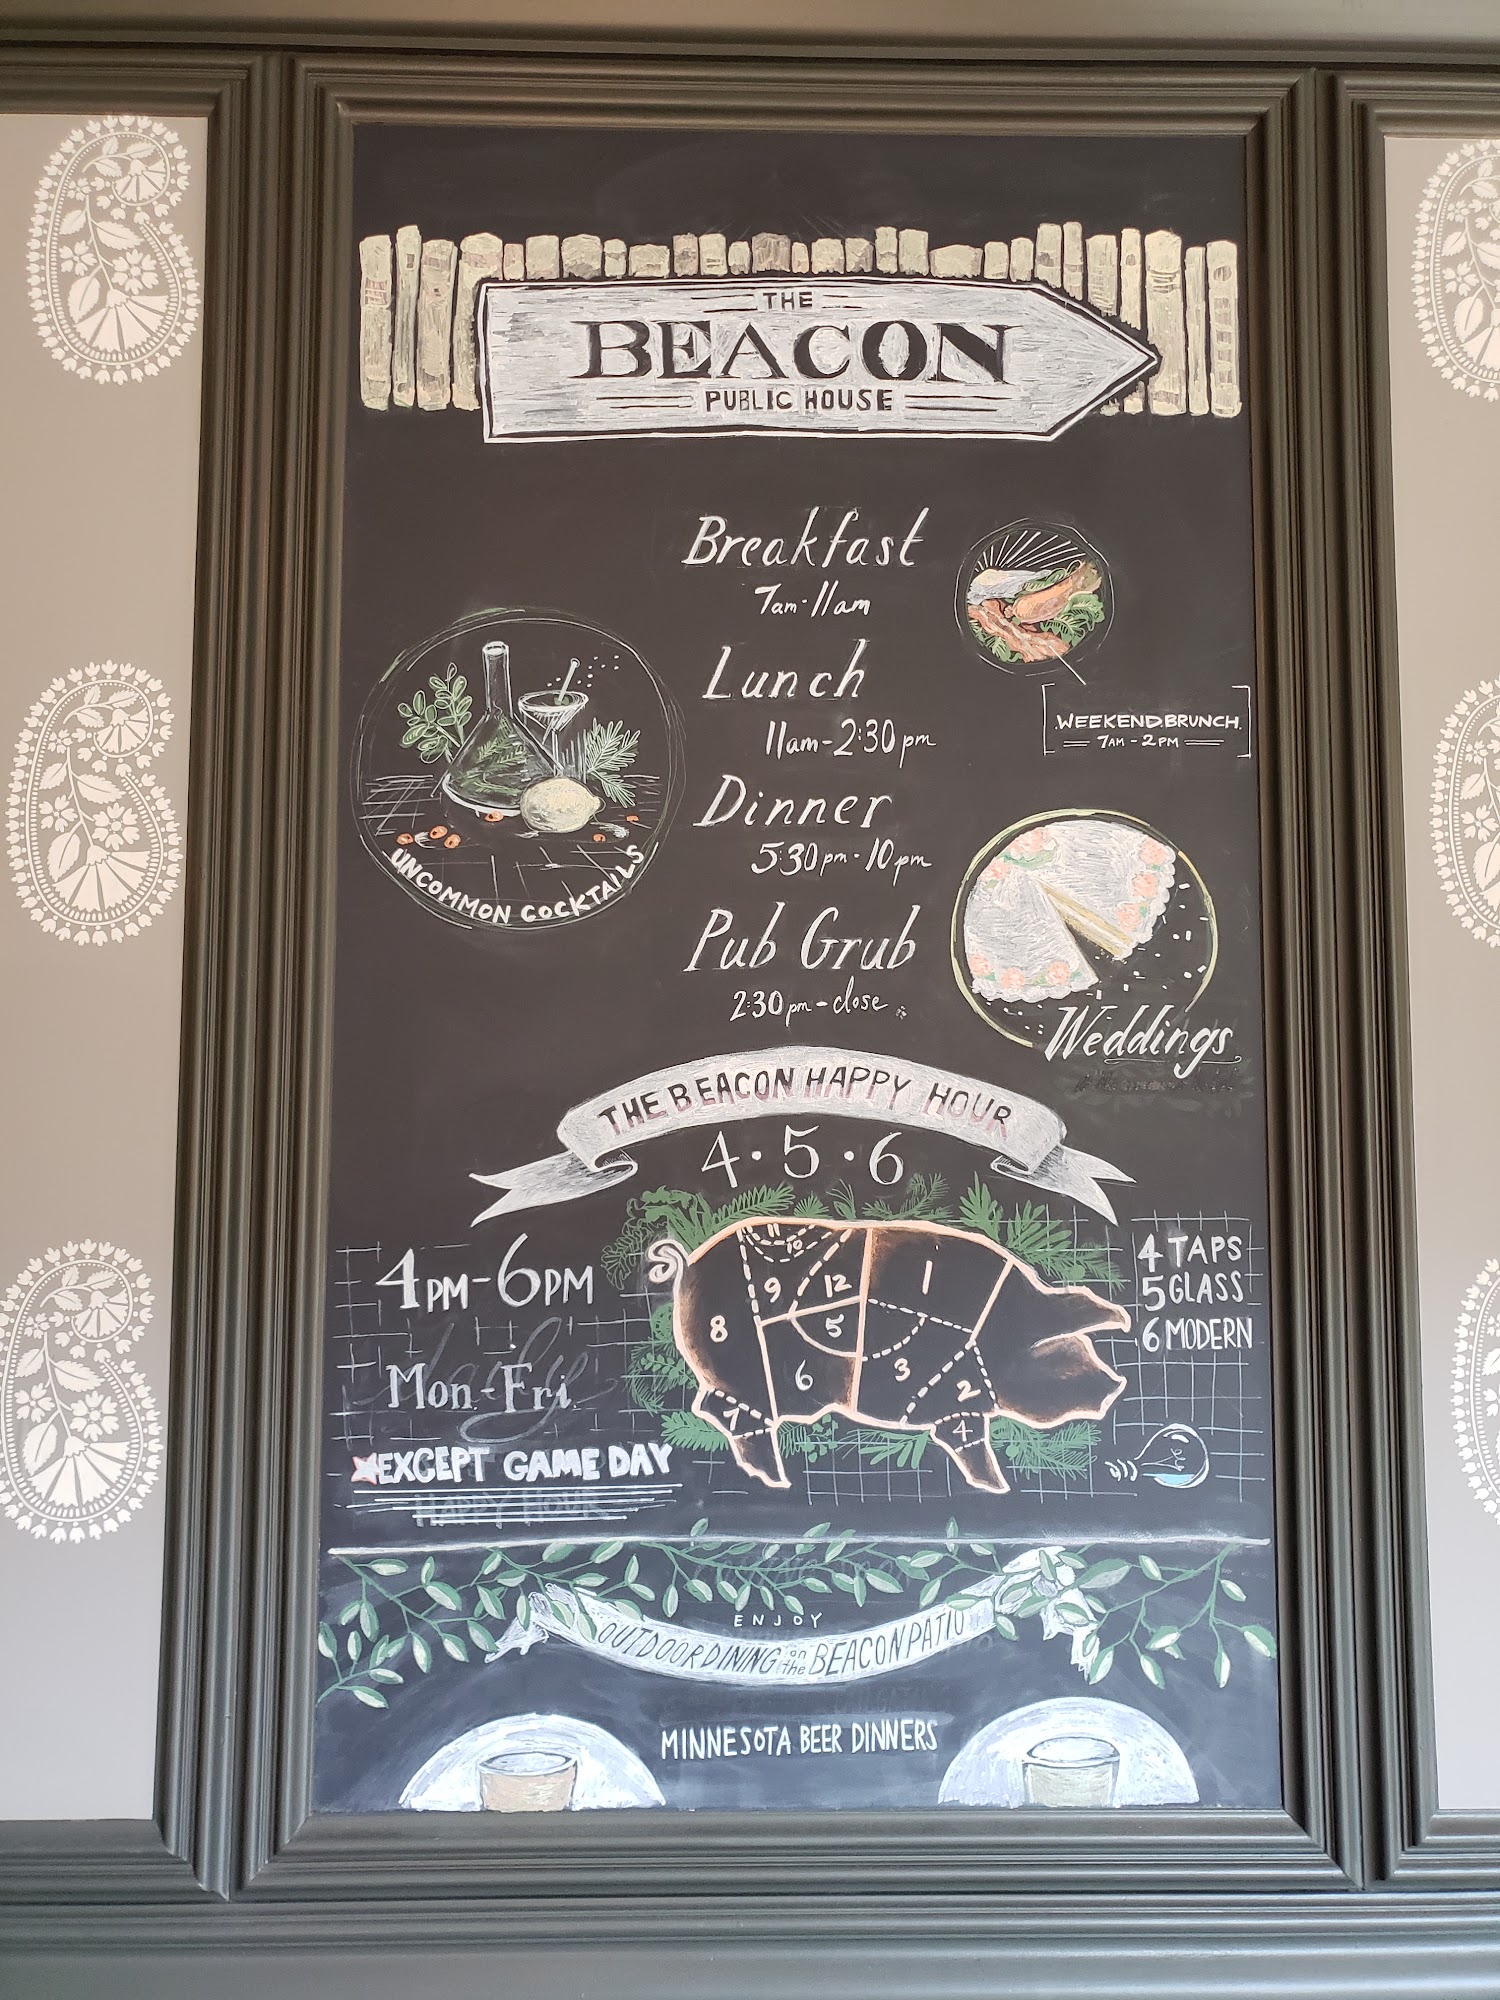 THE
BEACON
PUBLIC HOUSE
Breakfast
7am-11am
Lunch
11am-2:30pm
WEEKEND BRUNCH
7AM - 2PM
Dinner
5:30pm-10pm
UNCOMMON COCKTAILS
Pub Grub
2:30pm-close
Weddings
THE BEACON HAPPY HOUR
4·5·6
4PM-6PM
Mon-Fri
*EXCEPT GAME DAY
HAPPY HOUR
11
10
9
12
1
8
5
6
3
2
7
4
4 TAPS
5 GLASS
6 MODERN
ENJOY
OUTDOOR DINING on the BEACON PATIO
MINNESOTA BEER DINNERS